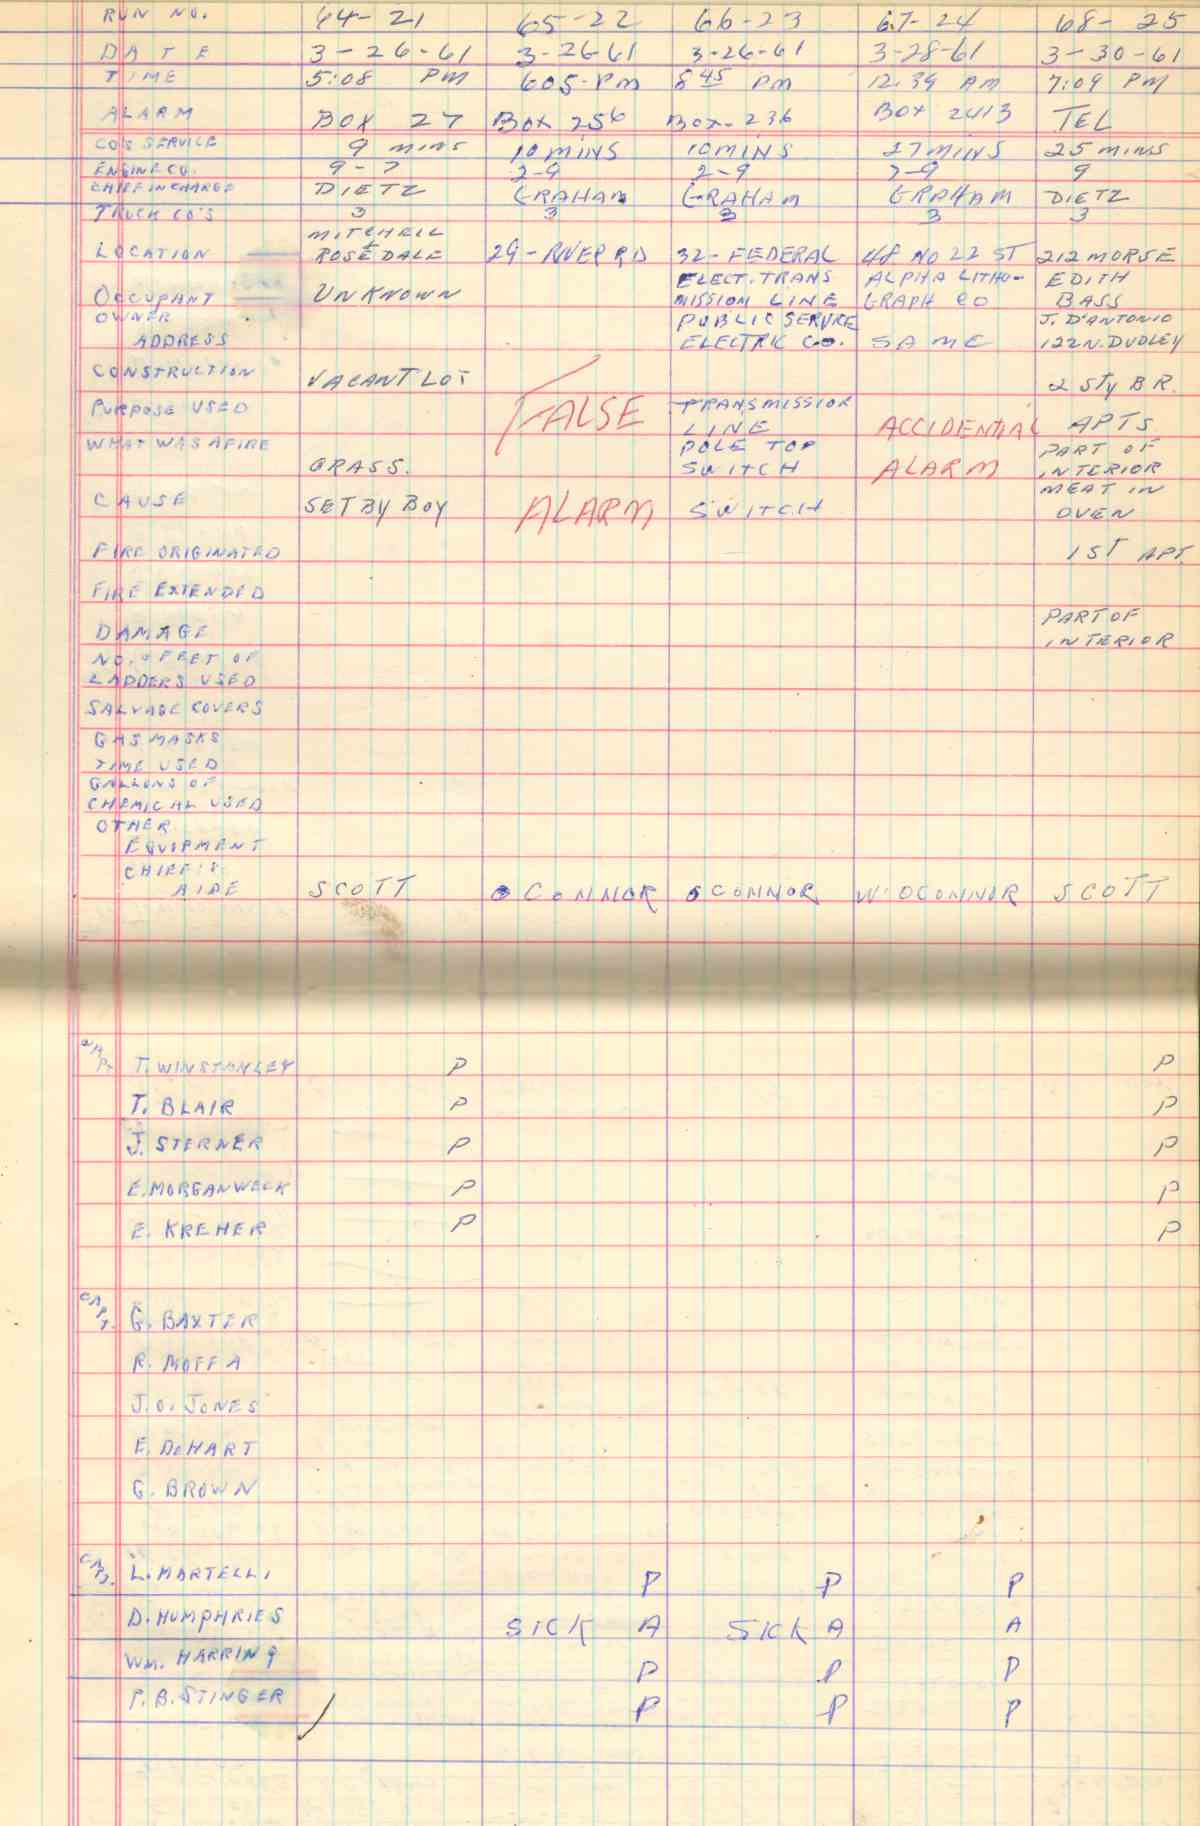 RUN NO. 64-21 65-22 66-23 67-24 68-25
DATE 3-26-61 3-26-61 3-26-61 3-28-61 3-30-61
TIME 5:08 PM 605-PM 8 45 PM 12:39 AM 7:09 PM
ALARM BOX 27 BOX 256 BOX-236 BOX 2413 TEL
CO'S SERVICE 9 MINS 10 MINS 10 MINS 27 MINS 25 MINS
ENGINE CO. 9-7 2-9 2-9 7-9 9
CHIEF IN CHARGE DIETZ GRAHAM GRAHAM GRAHAM DIETZ
TRUCK CO'S 3 3 3 3 3
MITCHELL
LOCATION & ROSEDALE 29-RIVER RD 32-FEDERAL 48 NO 22 ST 212 MORSE
ELECT. TRANS ALPHA LITHO- EDITH
OCCUPANT UNKNOWN MISSION LINE GRAPH CO BASS
OWNER PUBLIC SERVICE J. D'ANTONIO
ADDRESS ELECTRIC CO. SAME 122 N. DUDLEY
CONSTRUCTION VACANT LOT 2 STY BR.
PURPOSE USED FALSE TRANSMISSION
LINE ACCIDENTIAL APTS
WHAT WAS AFIRE POLE TOP PART OF
GRASS. SWITCH ALARM INTERIOR
MEAT IN
CAUSE SET BY BOY ALARM SWITCH OVEN
FIRE ORIGINATED 1ST APT.
FIRE EXTENDED
PART OF
DAMAGE INTERIOR
NO. OF FEET OF
LADDERS USED
SALVAGE COVERS
GAS MASKS
TIME USED
GALLONS OF
CHEMICAL USED
OTHER
EQUIPMENT
CHIEF'S
AIDE SCOTT O CONNOR O CONNOR W. OCONNOR SCOTT
CAPT. T. WINSTANLEY P P
T. BLAIR P P
J. STERNER P P
E. MORGANWECK P P
E. KREHER P P
CAPT. G. BAXTER
R. MOFFA
J.O. JONES
E. DEHART
G. BROWN
CAPT. L. MARTELLI P P P
D. HUMPHRIES SICK A SICK A A
WM. HARRING P P P
P.B. STINGER P P P